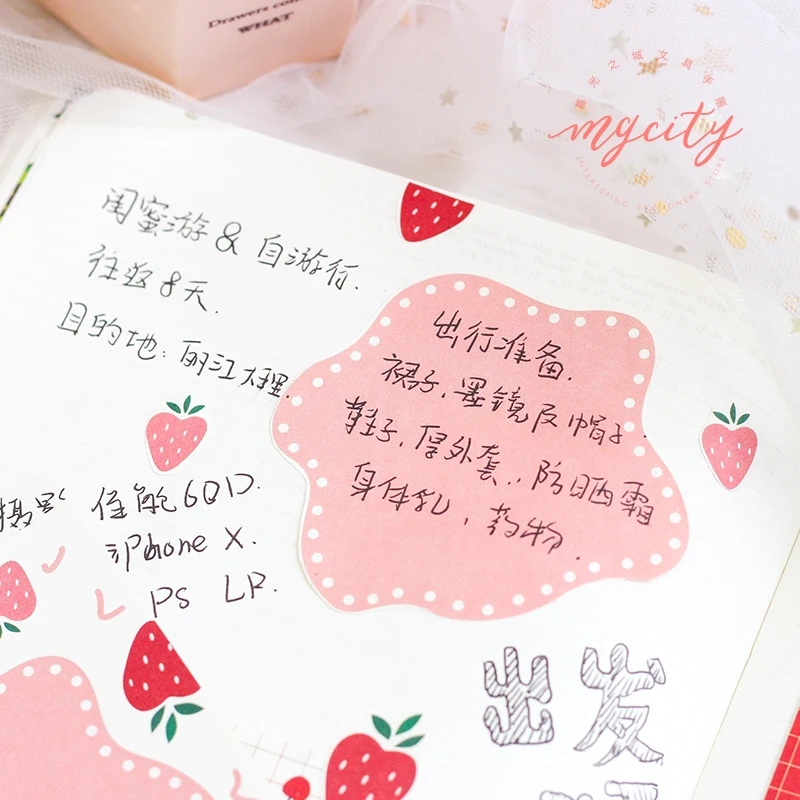 Drawers
WHAT
晨光之城文具乐園
mycity
INTERESTING STATIONERY STORE
闺蜜游 & 自游行.
往返8天.
目的地：丽江大理
出行准备.
裙子，墨镜及帽子.
鞋子，厚外套，防晒霜
身体乳，药物.
佳能60D.
iPhone X.
PS LR.
出发